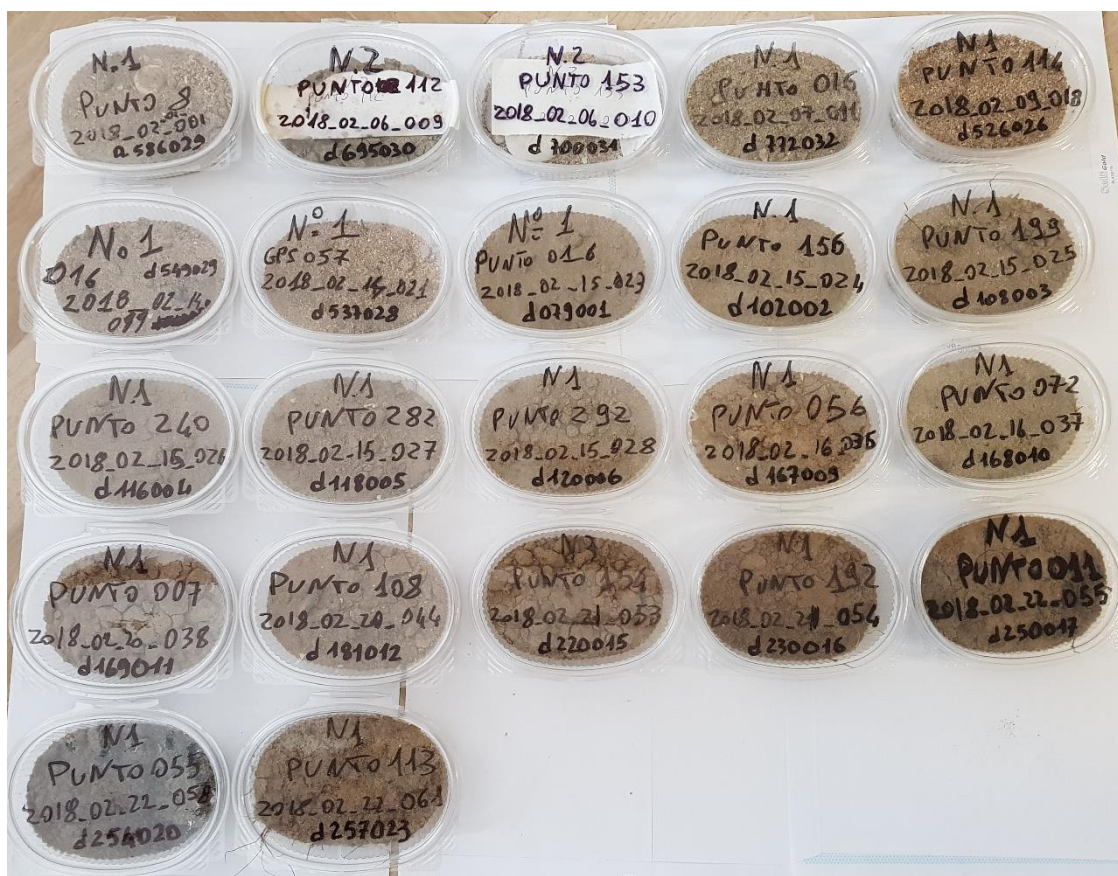 N.1
PUNTO 8
2018_02_001
a586029
N.2
PUNTO 112
2018_02_06_009
d695030
N.2
PUNTO 153
2018_02_06_010
d700031
N.1
PUNTO 016
2018_02_07_011
d772032
N.1
PUNTO 114
2018_02_09_018
d526026
No 1
016 d549029
2018_02_14_
019
Nº 1
GPS 057
2018_02_14_021
d537028
Nº 1
PUNTO 016
2018_02_15_023
d079001
N.1
PUNTO 156
2018_02_15_024
d102002
N.1
PUNTO 199
2018_02_15_025
d108003
N.1
PUNTO 240
2018_02_15_026
d116004
N.1
PUNTO 282
2018_02_15_027
d118005
N.1
PUNTO 292
2018_02_15_028
d120006
N.1
PUNTO 056
2018_02_16_036
d167009
N.1
PUNTO 072
2018_02_16_037
d168010
N.1
PUNTO 007
2018_02_20_038
d169011
N.1
PUNTO 108
2018_02_20_044
d181012
PUNTO 151
2018_02_21_053
d220015
N.1
PUNTO 192
2018_02_21_054
d230016
N.1
PUNTO 011
2018_02_22_055
d250017
N.1
PUNTO 055
2018_02_22_058
d254020
N.1
PUNTO 113
2018_02_22_061
d257023